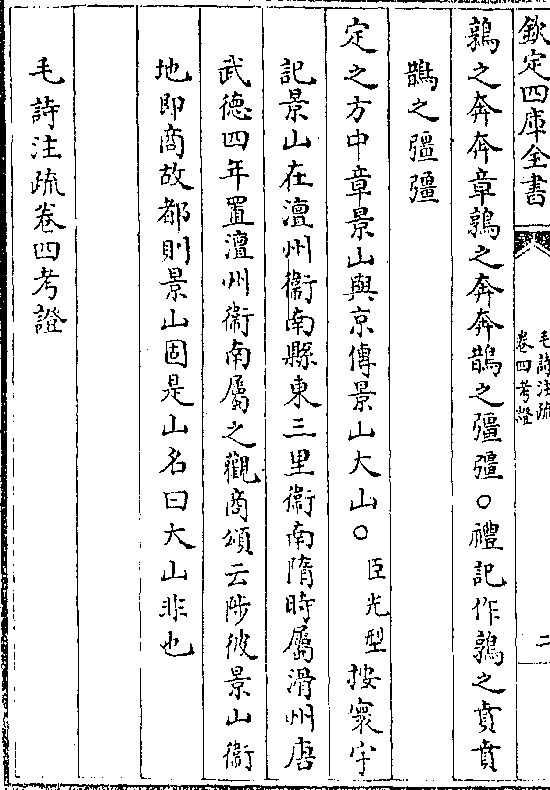 欽定四庫全書
毛詩注疏
卷四考證
二
鶉之奔奔章鶉之奔奔鵲之彊彊○禮記作鶉之賁賁
鵲之彊彊
定之方中章景山與京傳景山大山○臣光型按寰宇
記景山在澶州衛南縣東三里衛南隋時屬滑州唐
武德四年置澶州衛南屬之觀商頌云陟彼景山衛
地即商故都則景山固是山名曰大山非也
毛詩注疏卷四考證